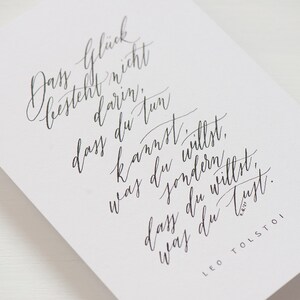 Das Glück
besteht nicht
darin,
dass du tun
kannst,
was du willst,
sondern
dass du willst,
was du tust.
LEO TOLSTOI